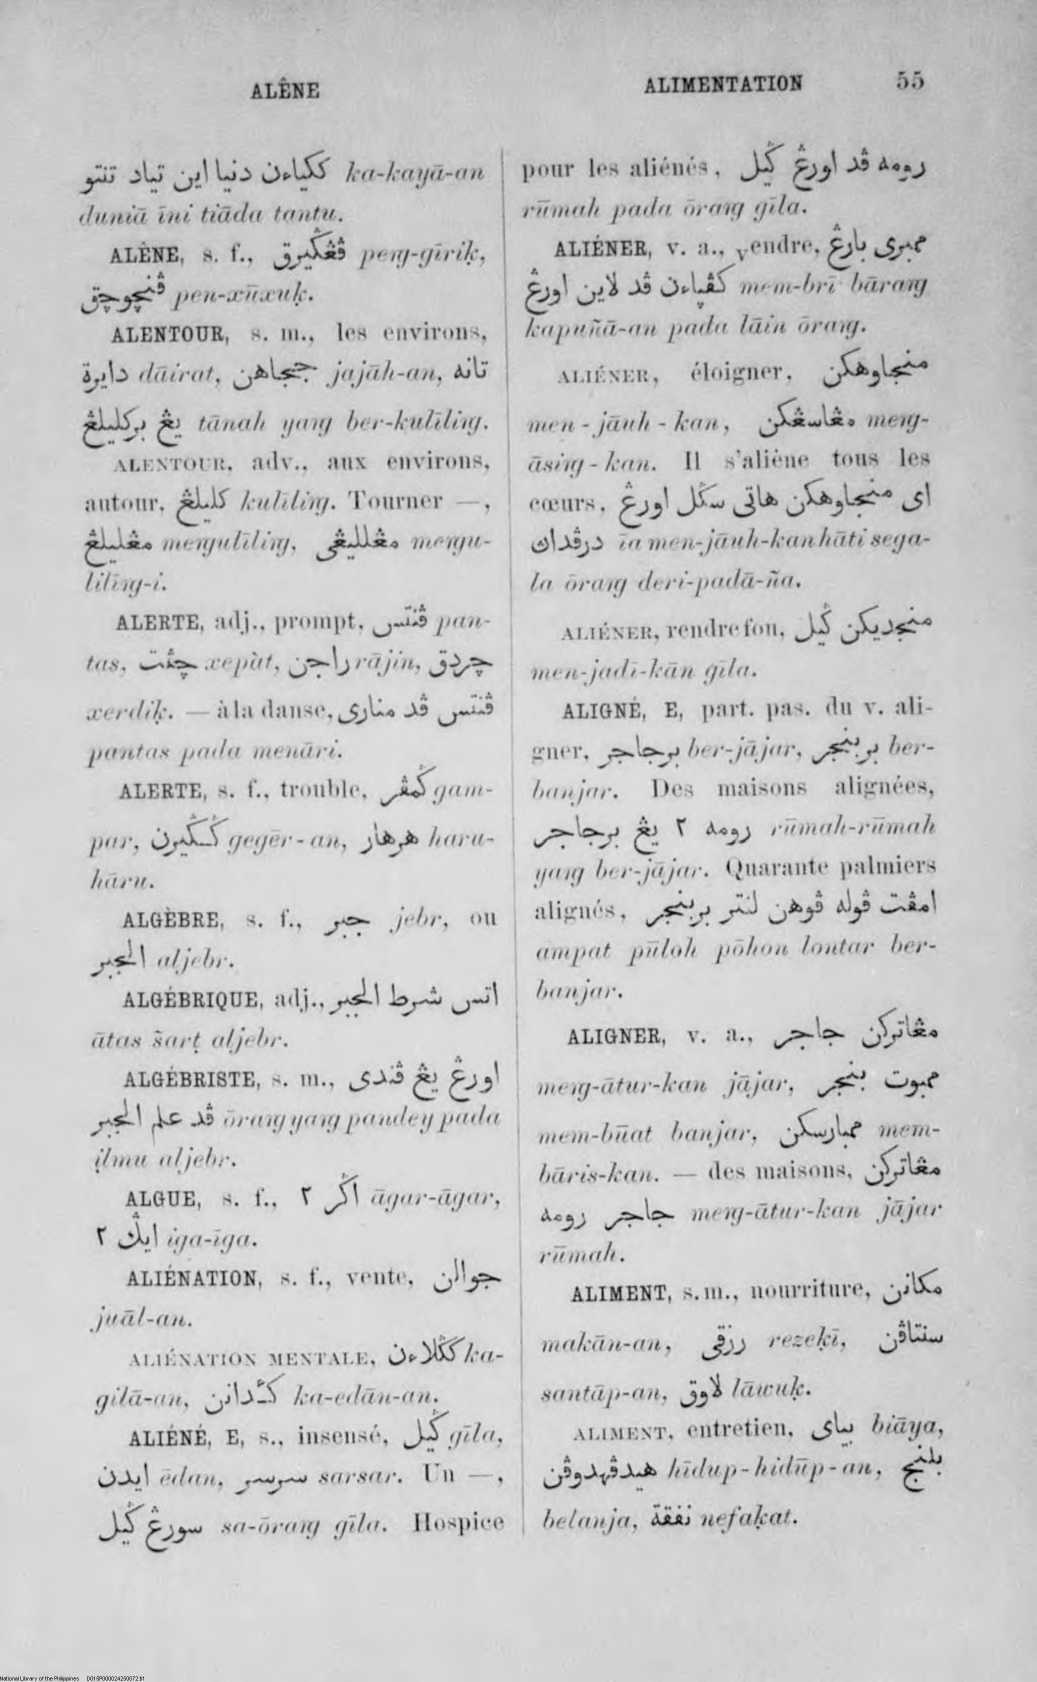 ALÊNE
ALIMENTATION 55
ككياءن دنيا اين تياد تنتو ka-kayā-an
duniā īni tiāda tantu.
ALÊNE, s. f., ڤڠݢيرق peng-gīriḳ,
ڤنچوچق pen-xūxuḳ.
ALENTOUR, s. m., les environs,
دايرة dāirat, ججاهن jajāh-an, تانه
يڠ بركليلڠ tānah yang ber-kulīling.
ALENTOUR, adv., aux environs,
autour, كليلڠ kulīling. Tourner —,
مڠليلڠ mengulīling, مڠلليڠي mengu-
līling-i.
ALERTE, adj., prompt, ڤنتس pan-
tas, چڤت xepàt, راجن rājin, چردق
xerdiḳ. — à la danse, ڤنتس ڤد مناري
pantas pada menāri.
ALERTE, s. f., trouble, ݢمڤر gam-
par, ݢݢيرن gegēr-an, هرهار haru-
hāru.
ALGÈBRE, s. f., جبر jebr, ou
الجبر aljebr.
ALGÉBRIQUE, adj., اتس شرط الجبر
ātas šarṭ aljebr.
ALGÉBRISTE, s. m., اورڠ يڠ ڤندي
ڤد علم الجبر ōrang yang pandey pada
ịlmu aljebr.
ALGUE, s. f., اݢر ٢ āgar-āgar,
ايݢ ٢ īga-īga.
ALIÉNATION, s. f., vente, جوالن
juāl-an.
ALIÉNATION MENTALE, كݢلاءن ka-
gilā-an, كئدانن ka-edān-an.
ALIÉNÉ, E, s., insensé, ݢيل gīla,
ايدن ēdan, سرسر sarsar. Un —,
سورڠ ݢيل sa-ōrang gīla. Hospice
pour les aliénés, رومه ڤد اورڠ ݢيل
rūmah pada ōrang gīla.
ALIÉNER, v. a., vendre, ممبري بارڠ
كڤپاءن ڤد لاين اورڠ mem-brī bārang
kapuñā-an pada lāin ōrang.
ALIÉNER, éloigner, منجاوهكن
men-jāuh-kan, مڠاسڠكن meng-
āsing-kan. Il s'aliène tous les
cœurs, اي منجاوهكن هاتي سݢل اورڠ
درڤداڽ īa men-jāuh-kan hāti sega-
la ōrang deri-padā-ña.
ALIÉNER, rendre fou, منجديكن ݢيل
men-jadī-kān gīla.
ALIGNÉ, E, part. pas. du v. ali-
gner, برجاجر ber-jājar, بربنجر ber-
banjar. Des maisons alignées,
رومه ٢ يڠ برجاجر rūmah-rūmah
yang ber-jājar. Quarante palmiers
alignés, امڤت ڤوله ڤوهن لنتر بربنجر
ampat pūloh pōhon lontar ber-
banjar.
ALIGNER, v. a., مڠاتركن جاجر
meng-ātur-kan jājar, ممبوت بنجر
mem-būat banjar, ممبارسكن mem-
bāris-kan. — des maisons, مڠاتركن
جاجر رومه meng-ātur-kan jājar
rūmah.
ALIMENT, s. m., nourriture, مكانن
makān-an, رزقي rezeḳī, سنتاڤن
santāp-an, لاوق lāwuḳ.
ALIMENT, entretien, بياي biāya,
هيدڤهيدوڤن hīdup-hidūp-an, بلنج
belanja, نفقة nefaḳat.
National Library of the Philippines